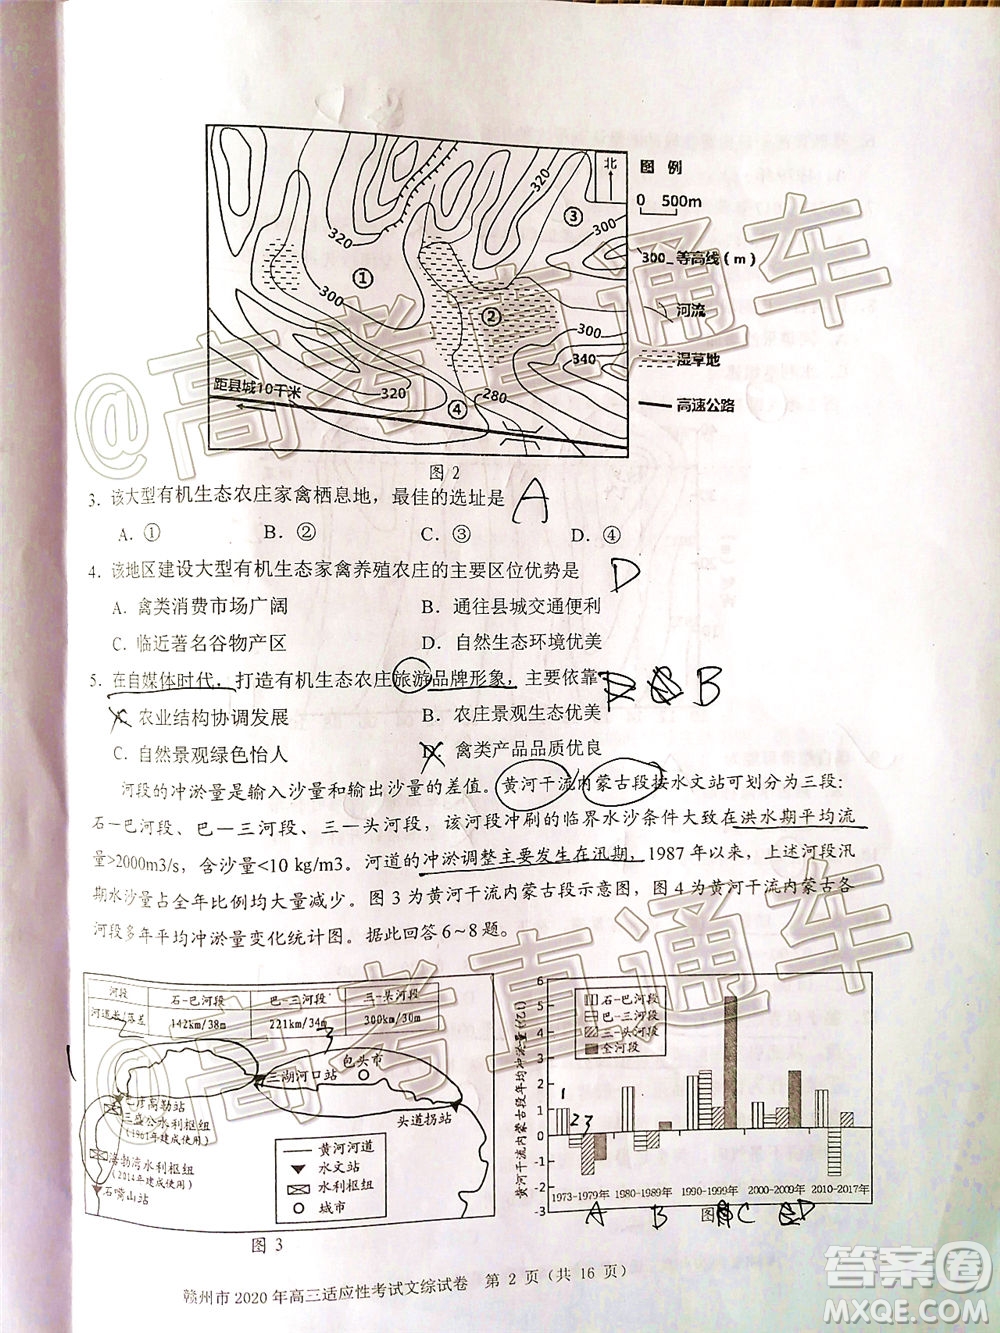 北
图 例
0 500m
300 等高线（m）
河流
湿草地
高速公路
320
320
320
300
300
300
340
320
280
①
②
③
④
距县城10千米
图 2
3. 该大型有机生态农庄家禽栖息地，最佳的选址是 A
A. ① B. ② C. ③ D. ④
4. 该地区建设大型有机生态家禽养殖农庄的主要区位优势是 D
A. 禽类消费市场广阔 B. 通往县城交通便利
C. 临近著名谷物产区 D. 自然生态环境优美
5. 在自媒体时代，打造有机生态农庄旅游品牌形象，主要依靠 B
农业结构协调发展 B. 农庄景观生态优美
C. 自然景观绿色怡人 D. 禽类产品品质优良
河段的冲淤量是输入沙量和输出沙量的差值。黄河干流内蒙古段按水文站可划分为三段：
石—巴河段、巴—三河段、三—头河段，该河段冲刷的临界水沙条件大致在洪水期平均流
量>2000m3/s，含沙量<10 kg/m3。河道的冲淤调整主要发生在汛期，1987 年以来，上述河段汛
期水沙量占全年比例均大量减少。图 3 为黄河干流内蒙古段示意图，图 4 为黄河干流内蒙古各
河段多年平均冲淤量变化统计图。据此回答 6~8 题。
河段 石—巴河段 巴—三河段 三—头河段
河道长/落差 142km/38m 221km/34m 300km/30m
包头市
三湖河口站
巴彦高勒站
三盛公水利枢纽
（1967年建成使用）
头道拐站
海勃湾水利枢纽
（2014年建成使用）
石嘴山站
黄河河道
水文站
水利枢纽
城市
图 3
黄河干流内蒙古段年均冲淤量（亿t）
6
5
4
3
2
1
0
-1
-2
-3
石—巴河段
巴—三河段
三—头河段
全河段
1 2 3
1973-1979年 1980-1989年 1990-1999年 2000-2009年 2010-2017年
A B C D
赣州市 2020 年高三适应性考试文综试卷 第 2 页（共 16 页）
@高考直通车
@高考直通车
答案圈
MXQE.COM